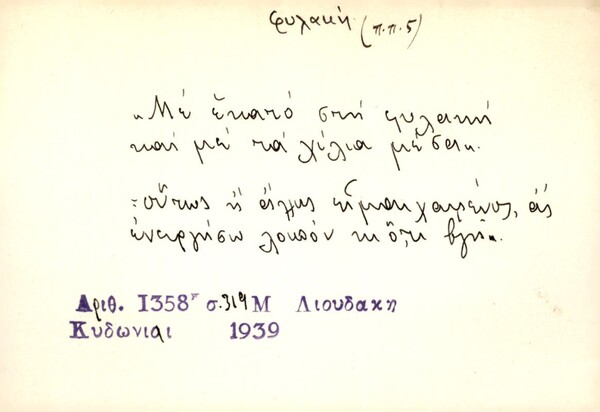 φυλακή (π.π.5)
„Μέ ἑκατό στή φυλακή
καί μέ τά χίλια μέσα".
=οὕτως ἤ ἄλλως εἶμαι χαμένος, ἄς
ἐνεργήσω λοιπόν κι ὅ,τι βγῆ".
Αριθ. 1358Γ σ.319 Μ Λιουδακη
Κυδωνιαι 1939